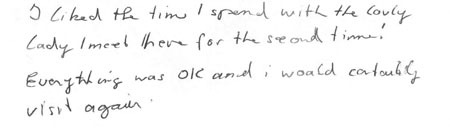 I liked the time I spend with the lovly
Lady I meet there for the second time!
Everything was OK and i woald catoubly
visit again.